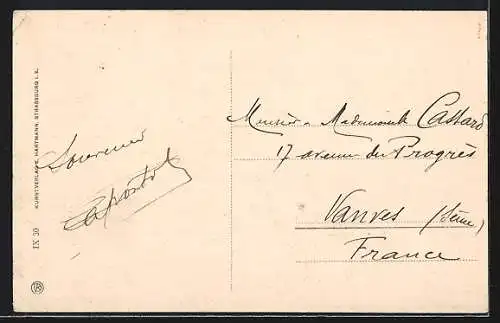 KUNSTVERLAG E. HARTMANN, STRASSBURG i. E.
IX 30
Souvenir
Monsieur Mademoiselle Castard
17 avenue du Progrès
Vanves (Seine)
France